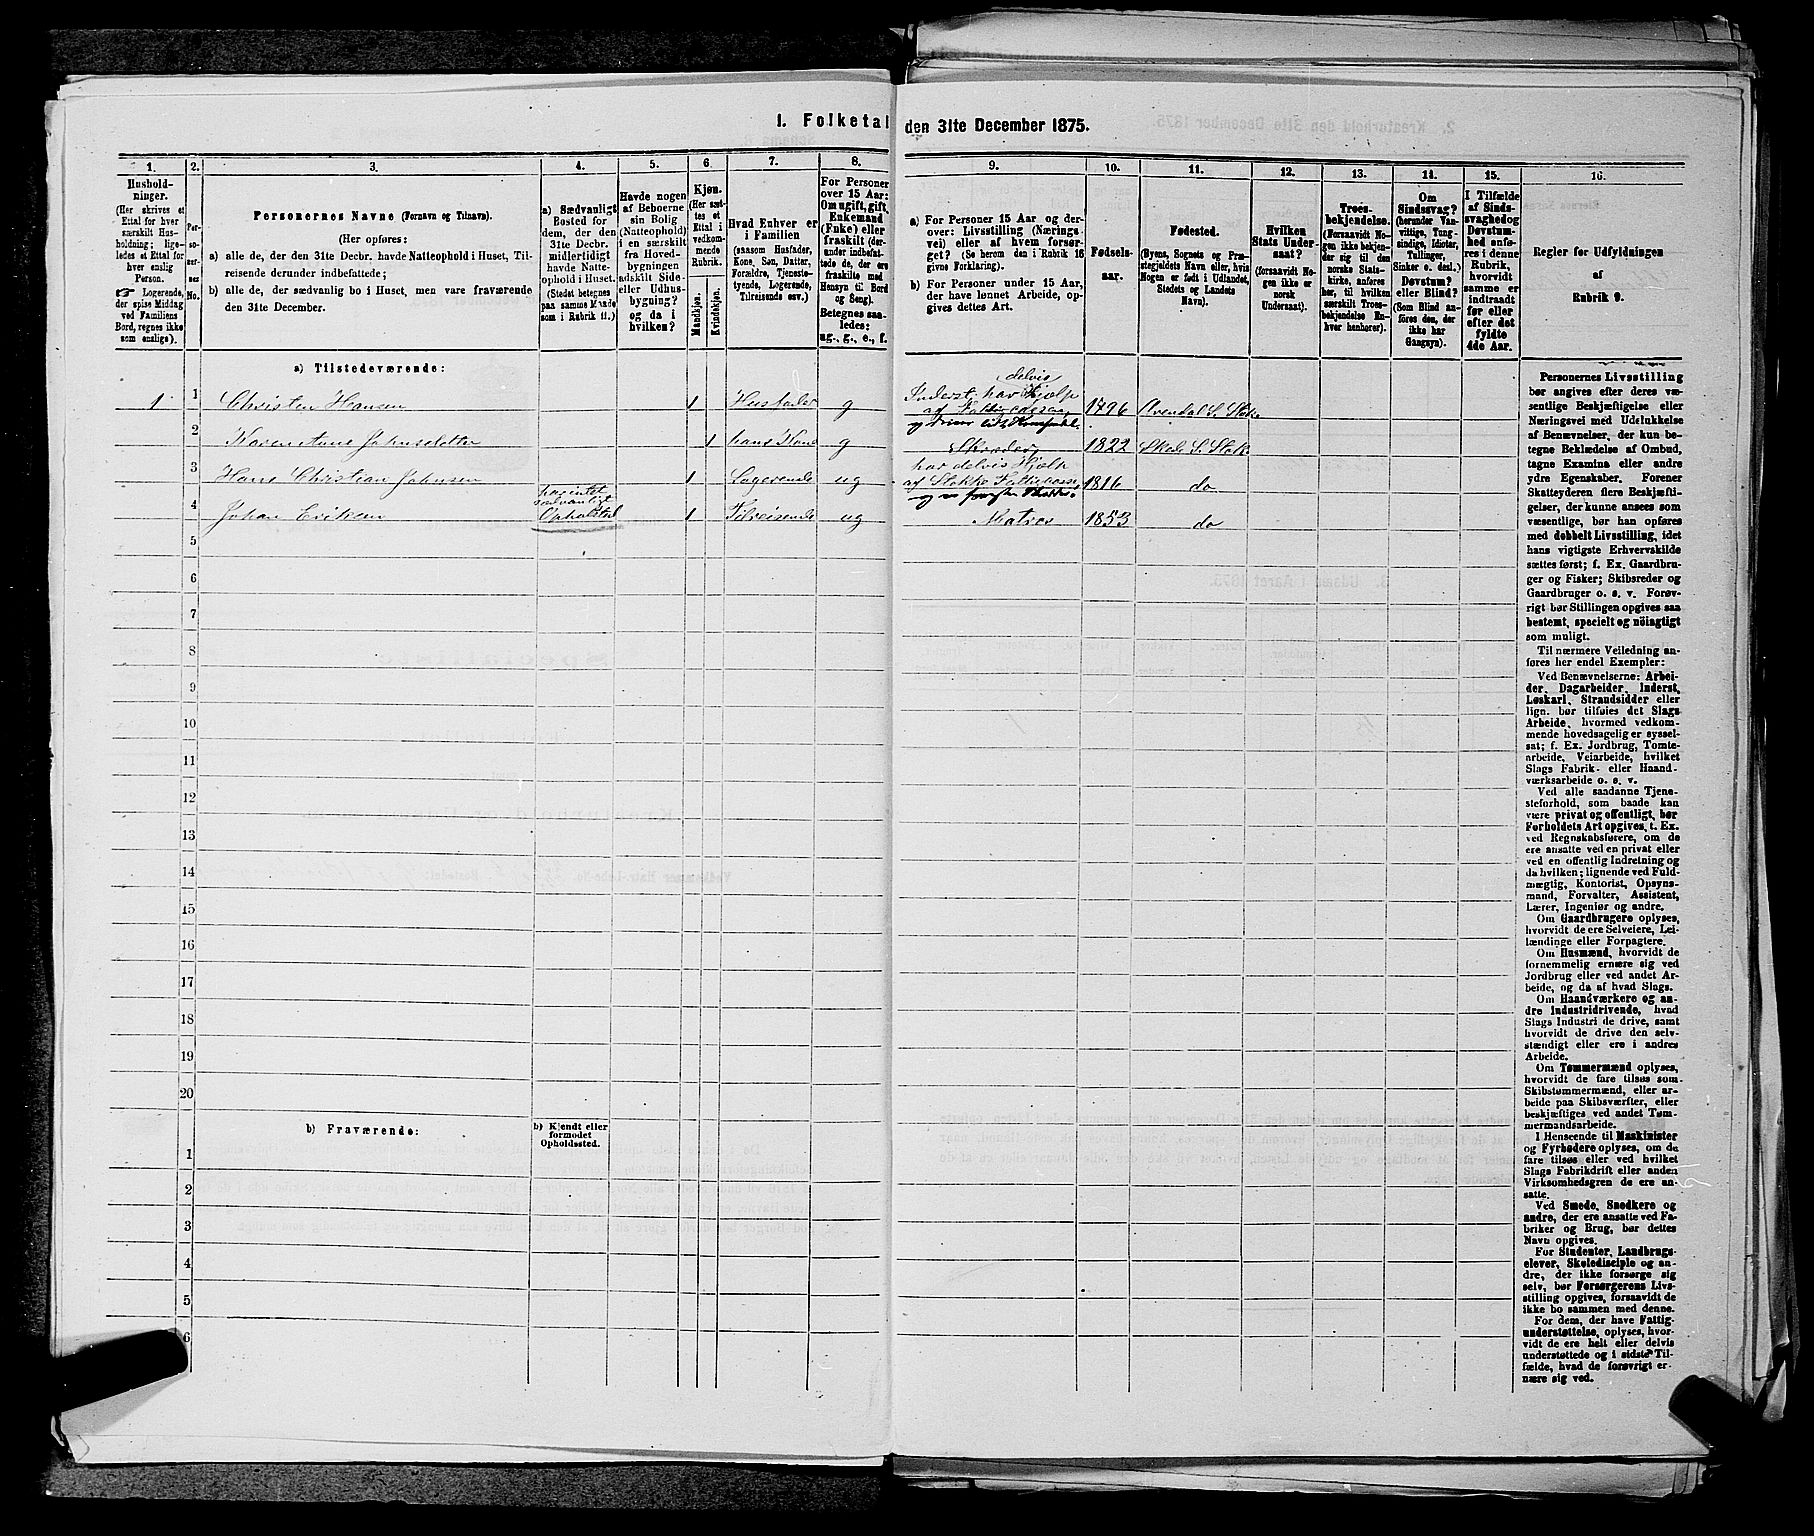 1. Folketal den 31te December 1875.
1. 2. 3. 4. 5. 6. 7. 8. 9. 10. 11. 12. 13. 14. 15. 16.
Hushold-
ninger.
(Her skrives et
Ettal for hver
særskilt Hus-
holdning; lige-
ledes et Ettal for
hver enslig
Person.
☞ Logerende,
der spise Middag
ved Familiens
Bord, regnes ikke
som enslige).
Per-
so-
ner-
nes
No.
Personernes Navne (Fornavn og Tilnavn).
(Her opføres:
a) alle de, der den 31te Decbr. havde Natteophold i Huset, Til-
reisende derunder indbefattede;
b) alle de, der sædvanlig bo i Huset, men vare fraværende
den 31te December.
a) Sædvanligt
Bosted for
dem, der den
31te Decbr.
midlertidigt
havde Natte-
ophold i Huset.
(Stedet betegnes
paa samme Maade
som i Rubrik 11.)
Havde nogen
af Beboerne
sin Bolig
(Natteophold)
i en særskilt
fra Hoved-
bygningen
adskilt Side-
eller Udhus-
bygning?
og da i
hvilken?
Kjøn.
(Her sæt-
tes et
Ettal i
vedkom-
mende
Rubrik.
Mandkjøn.
Kvindekjøn.
Hvad Enhver er
i Familien
(saasom Husfader,
Kone, Søn, Datter,
Forældre, Tjeneste-
tyende, Logerende,
Tilreisende osv.)
For Personer
over 15 Aar:
Om ugift, gift,
Enkemand
(Enke) eller
fraskilt (der-
under indbefat-
tede de, der ere
fraskilte med
Hensyn til Bord
og Seng).
Betegnes saa-
ledes:
ug., g., e., f.
a) For Personer 15 Aar og der-
over: Livsstilling (Nærings-
vei) eller af hvem forsør-
get? (Se herom den i Rubrik 16
givne Forklaring).
b) For Personer under 15 Aar,
der have lønnet Arbeide, op-
gives dettes Art.
Fødsels-
aar.
Fødested.
(Byens, Sognets og Præ-
stegjeldets Navn eller, hvis
Nogen er født i Udlandet,
Stedets og Landets
Navn).
Hvilken
Stats Under-
saat?
(forsaavidt No-
gen ikke er
norsk
Undersaat).
Troes-
bekjendelse.
(Forsaavidt No-
gen ikke bekjen-
der sig til den
norske Stats-
kirke, anføres
her, til hvilken
særskilt Troes-
bekjendelse En-
hver henhører).
Om
Sindssvag?
(herunder Van-
vittige, Tung-
sindige, Idioter,
Tullinger,
Sinker o. desl.)
Døvstum?
eller Blind?
(Som Blind an-
føres den, der
ikke har
Gangsyn).
I Tilfælde
af Sinds-
svaghed og
Døvstum-
hed anfø-
res i denne
Rubrik,
hvorvidt
samme er
indtraadt
før eller
efter det
fyldte
4de Aar.
Regler for Udfyldningen
af
Rubrik 9.
a) Tilstedeværende:
delvis
1 1 Christen Hansen 1 Husfader g Inderst, har Hjælp
af Fattigcassen 1796 Arendal S. Stokke
2 Karen Anne Johnsdatter 1 hans Kone g 1822 S. Stokke
3 Hans Christian Johnsen 1 Logerende ug har delvis Hjælp
af Stokke Fattigkasse, 1816 do
har intet
sædvanligt
4 Johan Eriksen Opholsted 1 Tilreisende ug Matros 1853 do
5
6
7
8
9
10
11
12
13
14
15
16
17
18
19
20
b) Fraværende:
b) Kjendt eller
formodet
Opholdssted.
1
2
3
4
5
6
Personernes Livsstilling
bør angives efter deres væ-
sentlige Beskjæftigelse eller
Næringsvei med Udelukkelse
af Benævnelser, der kun be-
tegne Beklædelse af Ombud,
tagne Examina eller andre
ydre Egenskaber. Forener
Skatteyderen flere Beskjæfti-
gelser, der kunne ansees som
væsentlige, bør han opføres
med dobbelt Livsstilling, idet
hans vigtigste Erhvervskilde
sættes først; f. Ex. Gaardbru-
ger og Fisker; Skibsreder og
Gaardbruger o. s. v. Forøv-
rigt bør Stillingen opgives saa
bestemt, specielt og nöiagtigt
som muligt.
Til nærmere Veiledning an-
føres her endel Exempler:
Ved Benævnelserne: Arbei-
der, Dagarbeider, Inderst,
Løskarl, Strandsidder eller
lign. bør tilføies det Slags
Arbeide, hvormed vedkom-
mende hovedsagelig er syssel-
sat; f. Ex. Jordbrug, Tomte-
arbeide, Veiarbeide, hvilket
Slags Fabrik- eller Haand-
værksarbeide o. s. v.
Ved alle saadanne Tjene-
steforhold, som baade kan
være privat og offentligt, bør
Forholdets Art opgives, t. Ex.
ved Regnskabsførere, om de
ere ansatte ved en privat eller
ved en offentlig Indretning og
da hvilken; lignende ved Fuld-
mægtig, Kontorist, Opsyns-
mand, Forvalter, Assistent,
Lærer, Ingeniør og andre.
Om Gaardbrugere oplyses,
hvorvidt de ere Selveiere, Lei-
lændinge eller Forpagtere.
Om Husmænd, hvorvidt de
fornemmelig ernære sig ved
Jordbrug eller ved andet Ar-
beide, og da af hvad Slags.
Om Haandværkere og an-
dre Industridrivende, hvad
Slags Industri de drive, samt
hvorvidt de drive den selv-
stændigt eller ere i andres
Arbeide.
Om Tømmermænd oplyses,
hvorvidt de fare tilsøs som
Skibstømmermænd, eller ar-
beide paa Skibsværfter, eller
beskjæftiges ved andet Tøm-
mermandsarbeide.
I Henseende til Maskinister
og Fyrbødere oplyses, om de
fare tilsøs eller ved hvilket
Slags Fabrikdrift eller anden
Virksomhedsgren de ere an-
satte.
Ved Smede, Snedkere og
andre, der ere ansatte ved Fa-
briker og Brug, bør dettes
Navn opgives.
For Studenter, Landbrugs-
elever, Skoledisciple og an-
dre, der ikke forsørge sig
selv, bør Forsørgerens Livs-
stilling opgives, forsaavidt de
ikke bo sammen med denne.
For dem, der have Fattig-
understøttelse, oplyses, hvor-
vidt de ere helt eller delvis
understøttede og i sidste Til-
fælde, hvad de forøvrigt er-
nære sig ved.